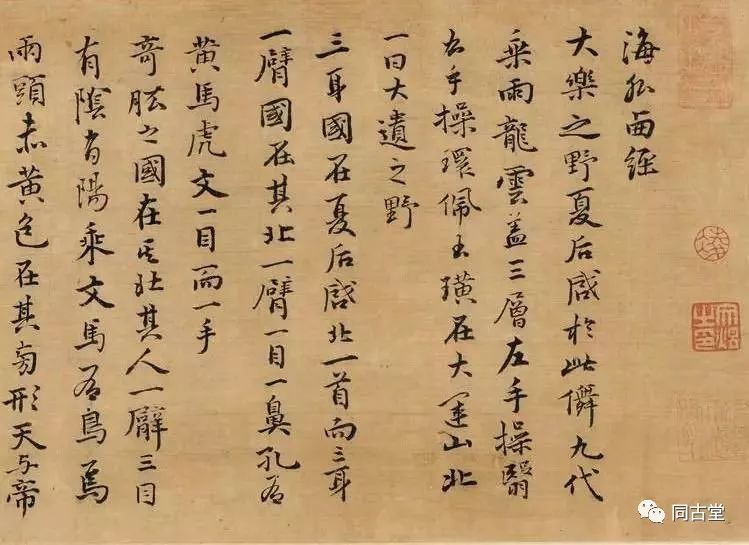 海外西經
大樂之野夏后啟於此儛九代
乘兩龍雲蓋三層左手操翳
右手操環佩玉璜在大運山北
一曰大遺之野
三身國在夏后啟北一首而三身
一臂國在其北一臂一目一鼻孔有
黃馬虎文一目而一手
奇肱之國在其北其人一臂三目
有陰有陽乘文馬有鳥焉
兩頭赤黃色在其旁形天与帝
同古堂